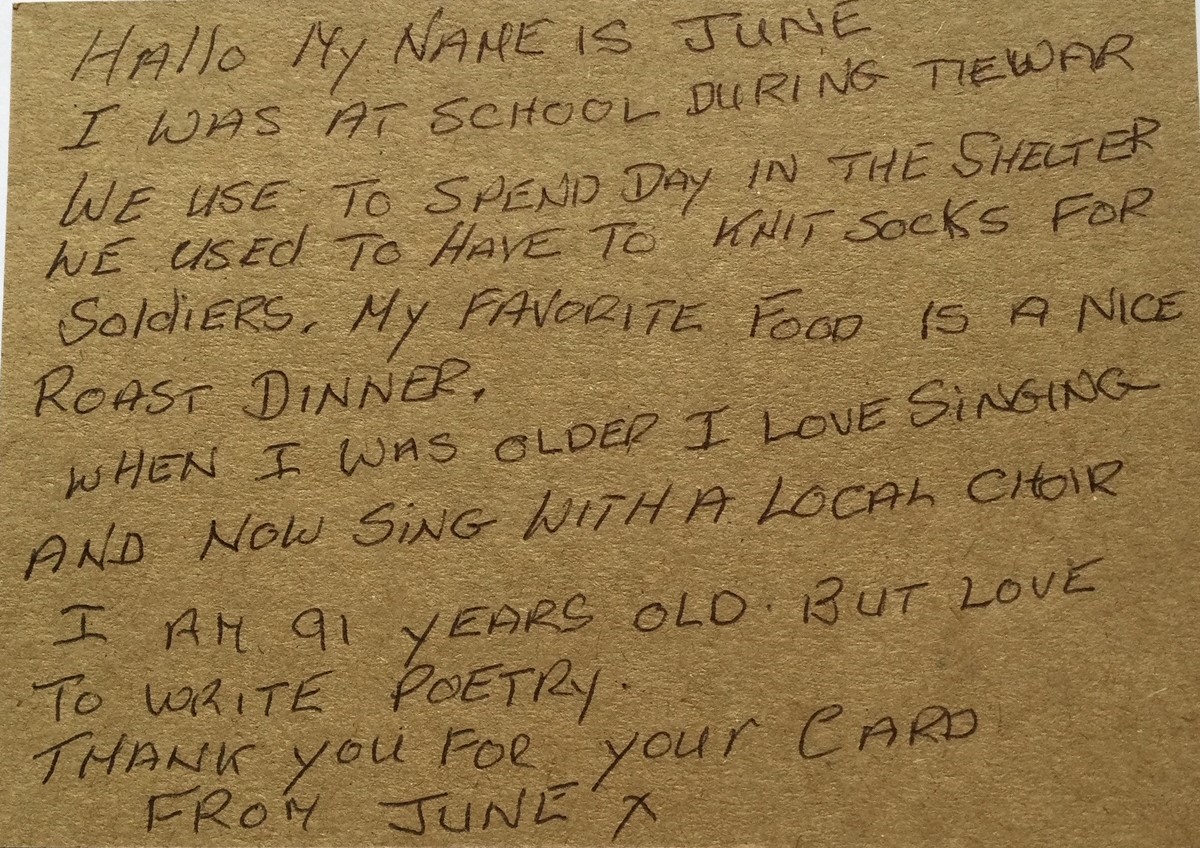 HAllo My NAME IS JUNE
I WAS AT SCHOOL DURING THEWAR
WE USE TO SPEND DAY IN THE SHELTER
WE USEd TO HAVE TO KNIT SOCKS FOR
SoldiERS. My FAVORITE FOOD IS A NICE
ROAST DINNER.
WHEN I WAS OLDER I LOVE SiNGING
AND NOW SiNG WITH A LOCAL CHOIR
I AM 91 yEARS OLD. BUT LOVE
To WRITE POETRy.
THANK you FOR your CARD
FROM JUNE X